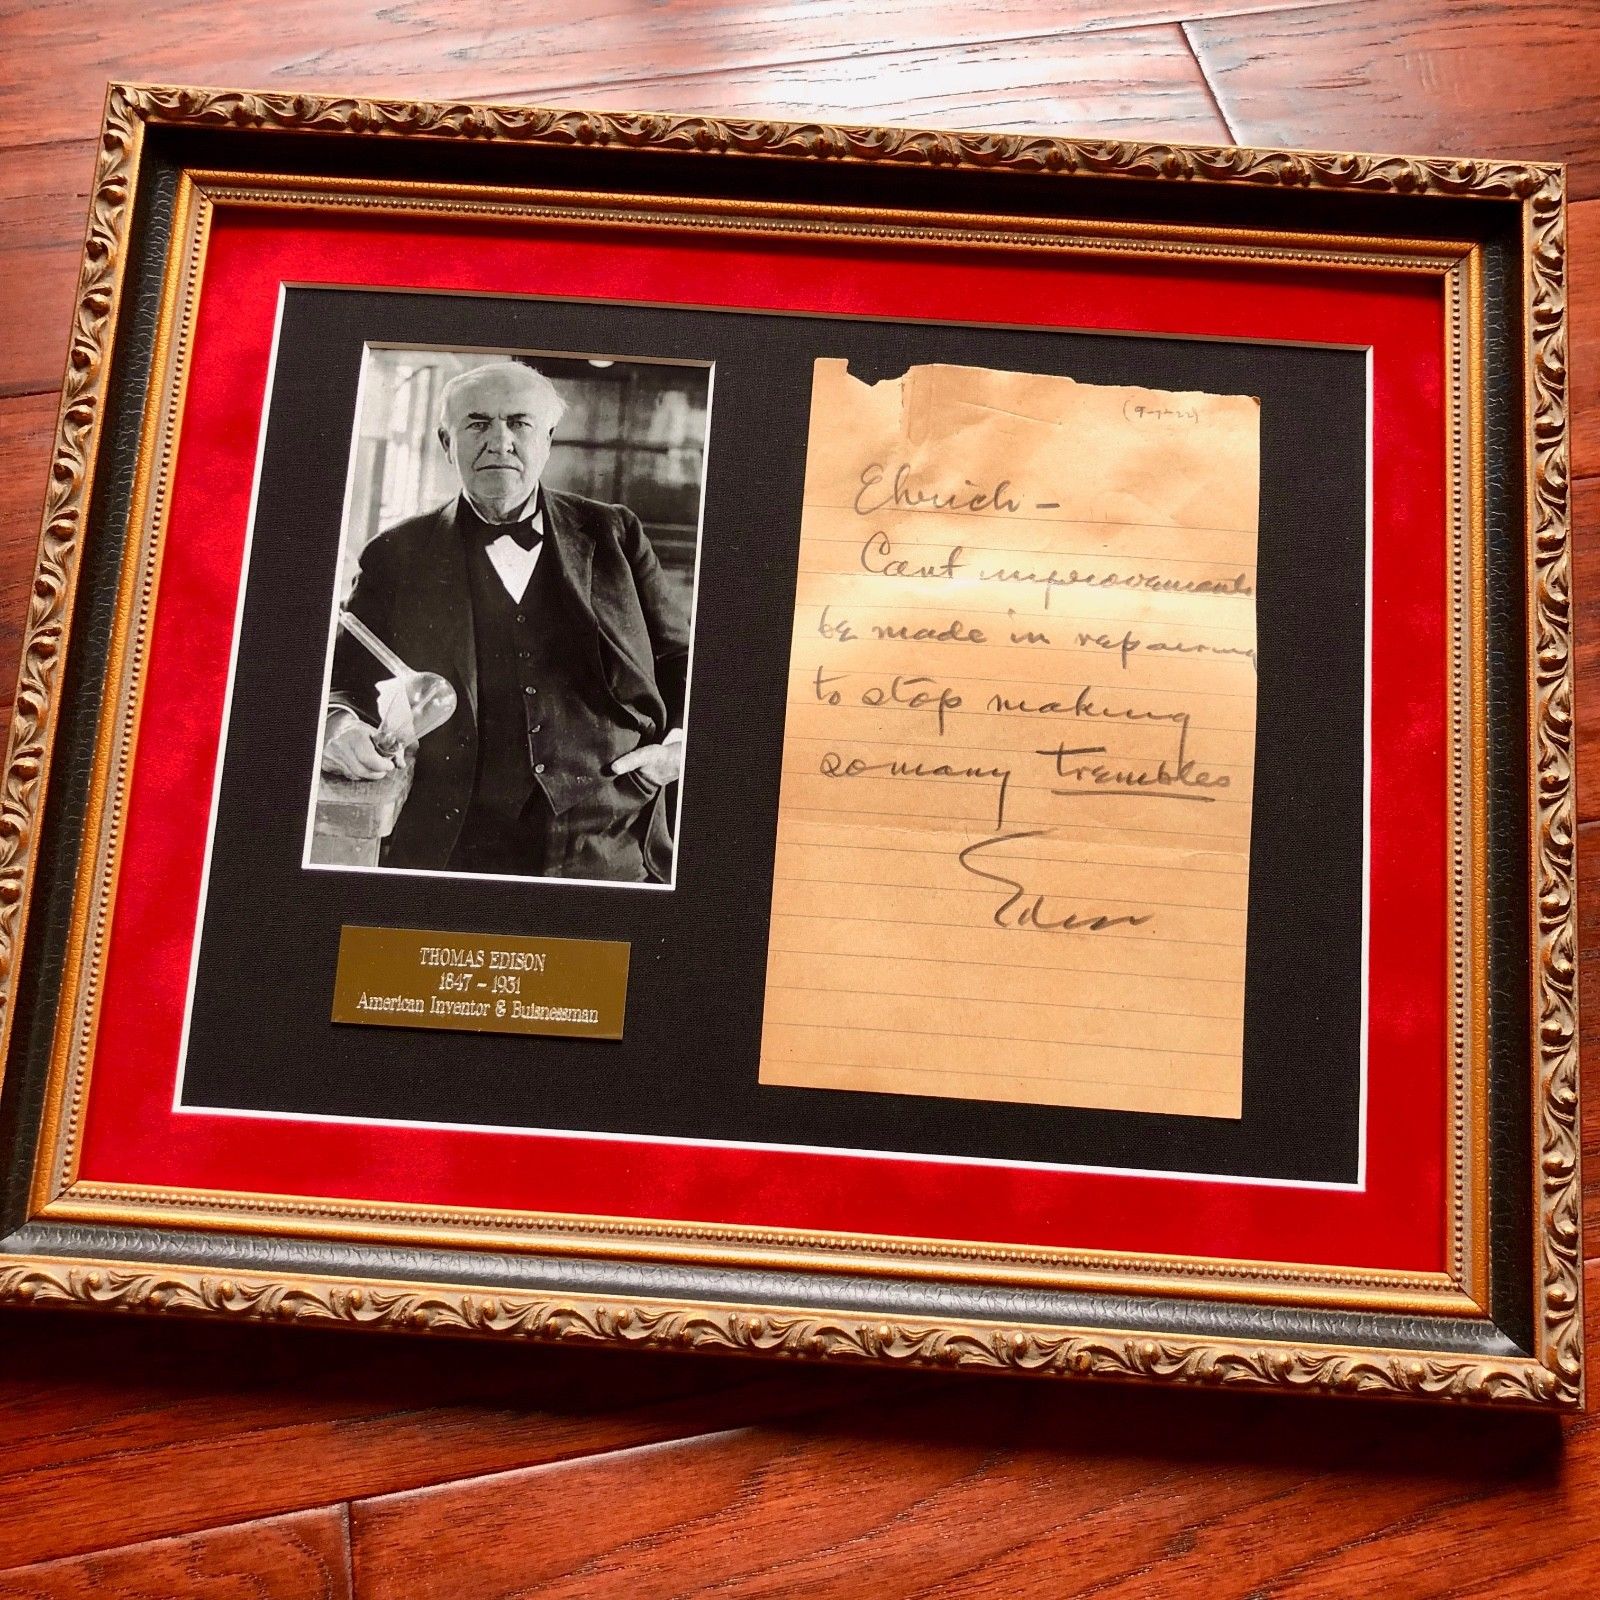 (9-7-22)
Ehrich -
Cant improvements
be made in repairing
to stop making
so many trembles
Edison
THOMAS EDISON
1847 - 1931
American Inventor & Buisnessman